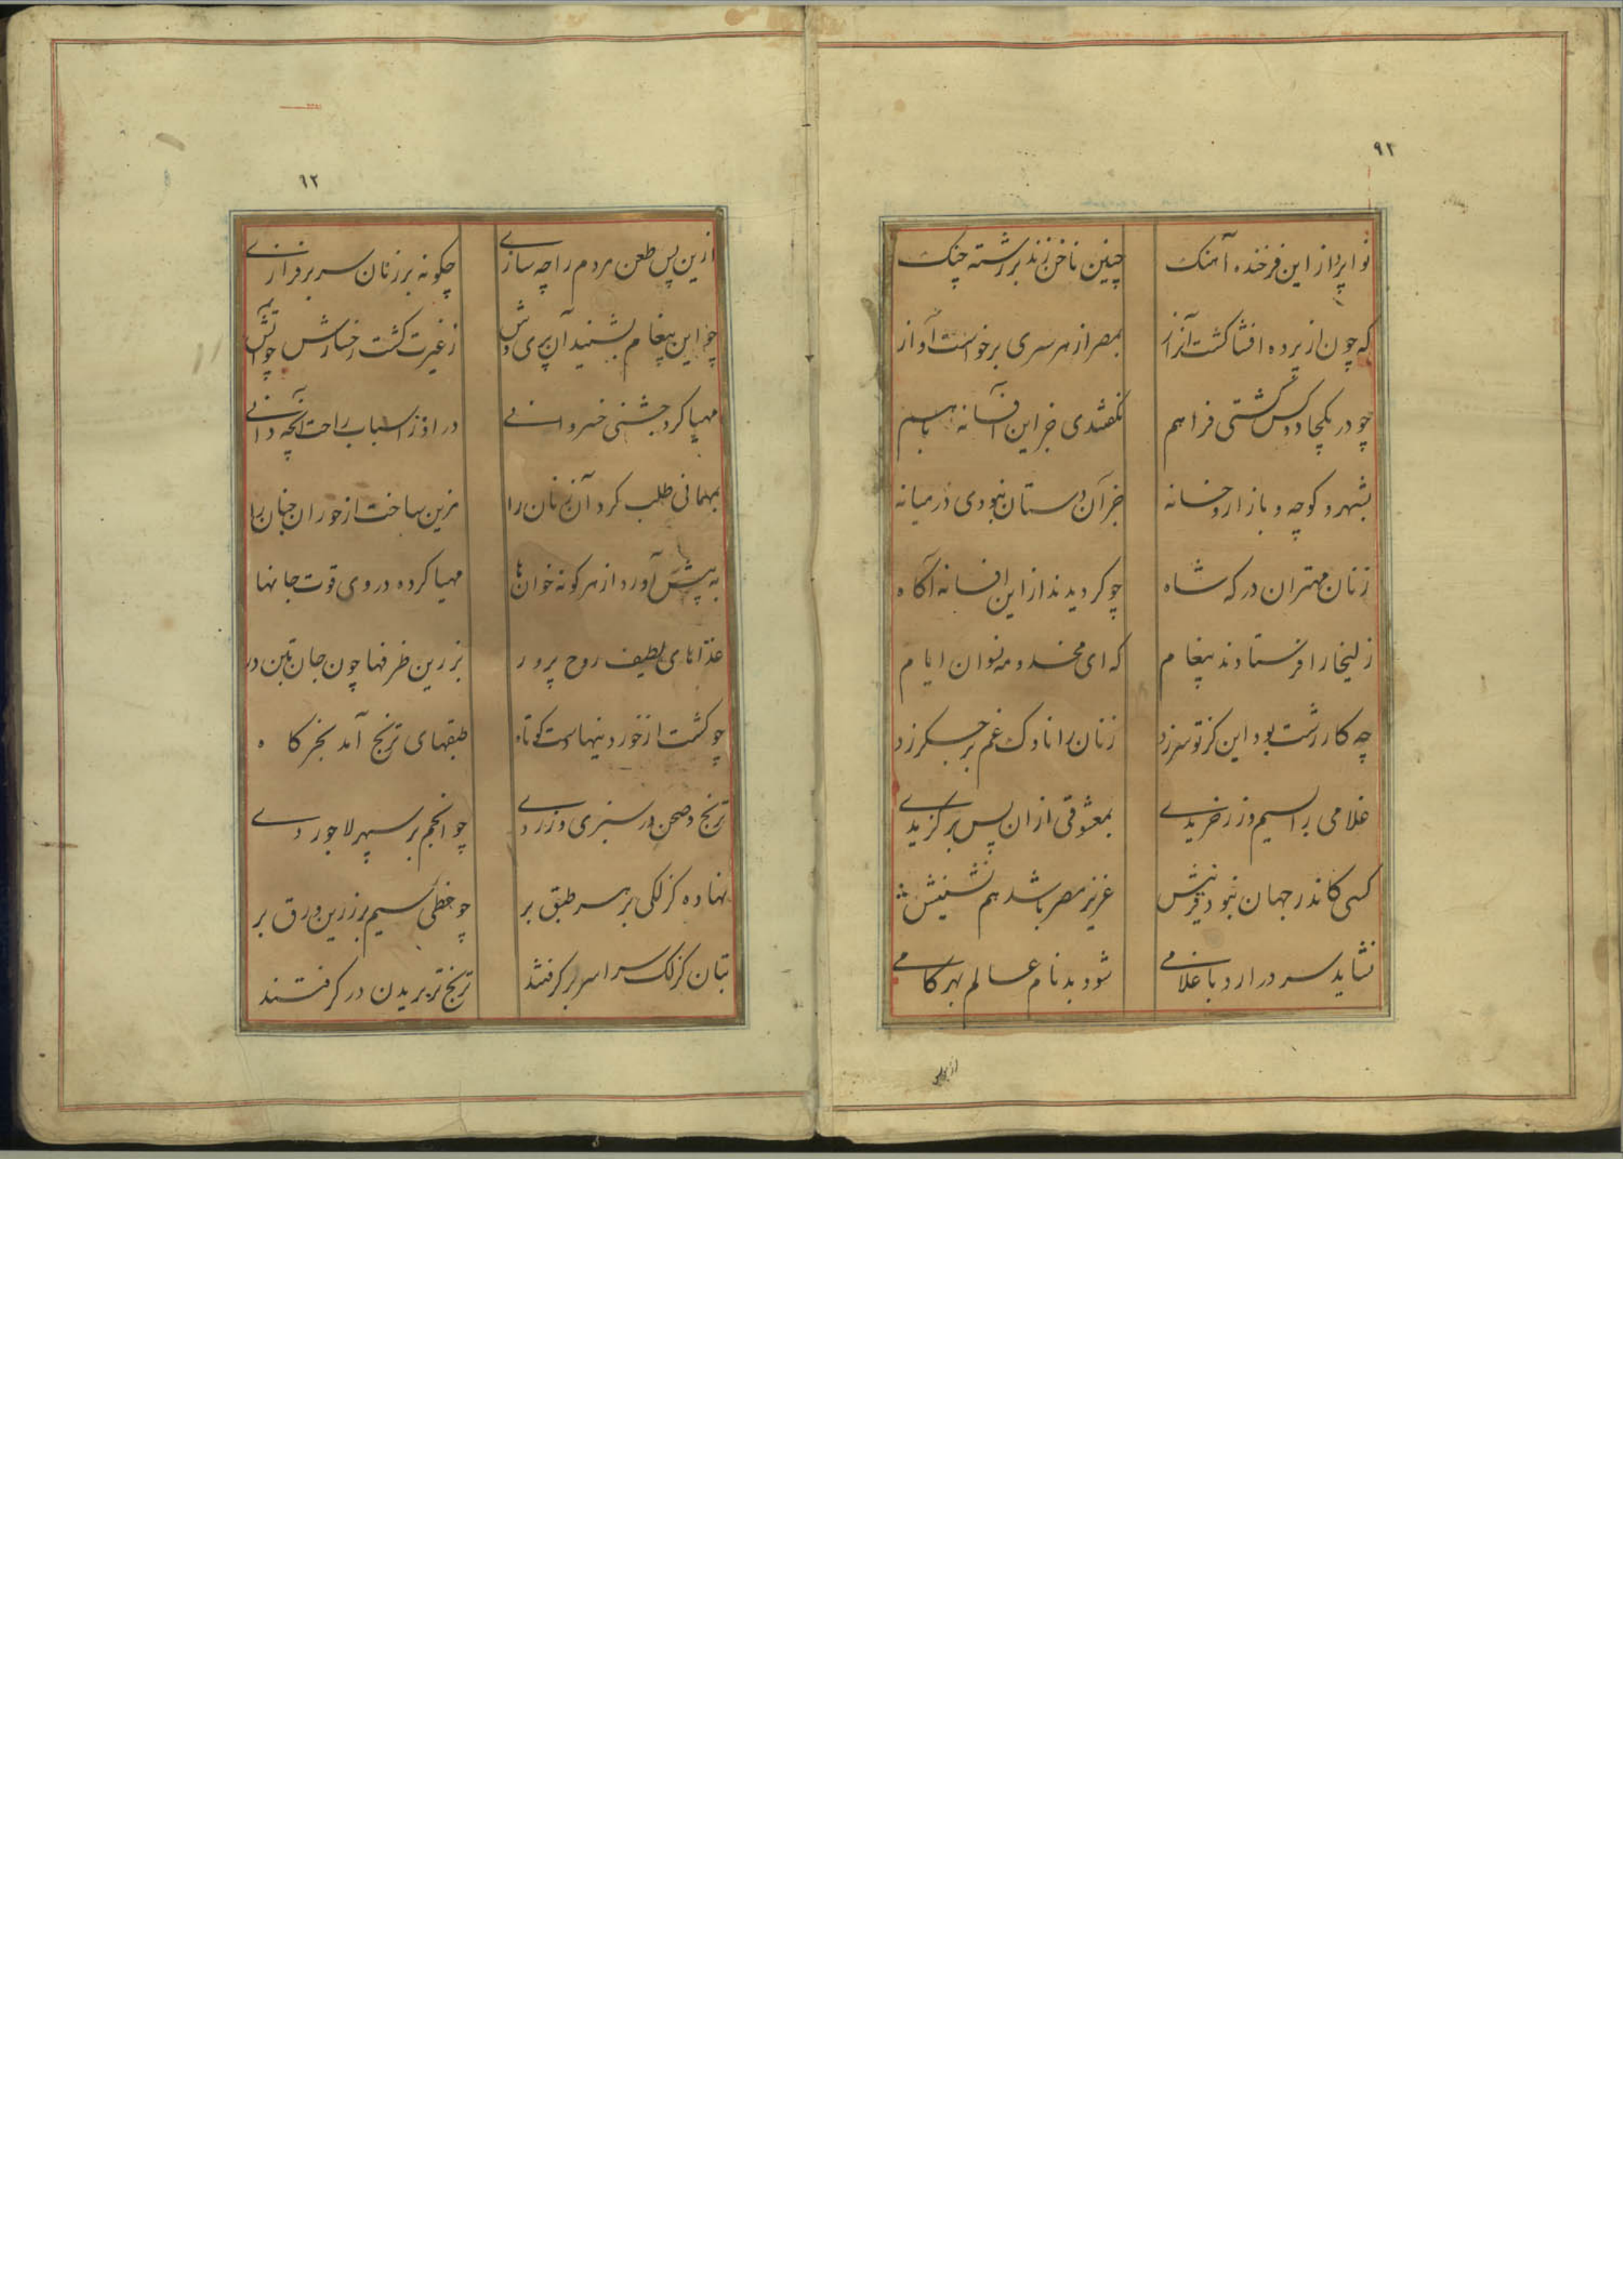 ۹۲
نواپرداز این فرخنده آهنک چنین ناخن زند بر رشته چنک
که چون از پرده افشا کشت آنراز بمصر از هر سری برخواست آواز
چو در یکجا دو کس کشتی فراهم نکفتندی جز این افسانه باهم
بشهر و کوچه و بازار و خانه جز آن دستان نبودی در میانه
زنان مهتران درکه شاه چو کردیدند از این افسانه آکاه
زلیخا را فرستادند پیغام که ای مخدومه نسوان ایام
چه کار زشت بود این کز تو سر زد زنان را ناوک غم بر جکر زد
غلامی را بسیم و زر خریدی بمعشوقی ازان پس برکزیدی
کسی کاندر جهان نبود قرینش عزیز مصر باشد هم نشینش
نشاید سر در ارد با غلامی شود بدنام عالم بهر کامی
ازین پس
۹۳
ازین پس طعن مردم را چه سازی چکونه بر زنان سر برفرازی
چه این پیغام بشنید آن پری وش ز غیرت کشت رخسارش چو آتش
مهیا کرد جشنی خسروانی در او ز اسباب راحت آنچه دانی
بمهمانی طلب کرد آن زنان را مزین ساخت از حوران جنان را
به پیش آورد از هر کونه خوان‌ها مهیا کرده در وی قوت جانها
غذاهای لطیف روح پرور بزرین ظرفها چون جان بتن در
چو کشت از خوردنیها دست کوتاه طبقهای ترنج آمد بخرکاه
ترنج و صحن در سبزی و زردی چو انجم بر سپهر لاجوردی
نهاده کزلکی بر هر طبق بر چو خطی سیم بر زرین ورق بر
بتان کزلک سراسر بر کرفتند ترنج تر بریدن در کرفتند